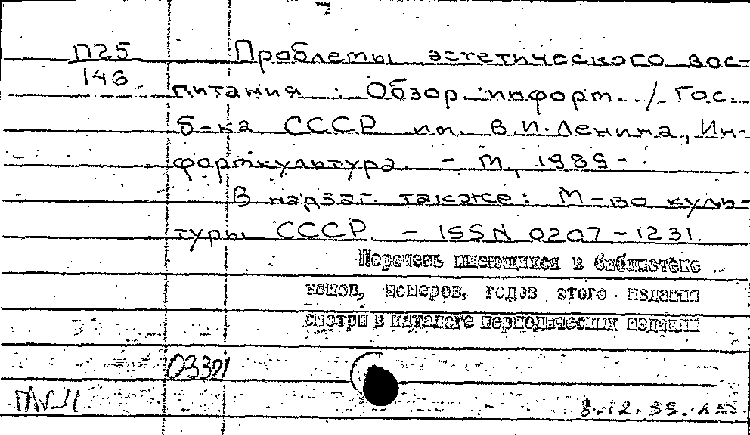 П25 Проблемы эстетического вос-
148 питания : Обзор. информ. / Гос.
б-ка СССР им. В.И.Ленина, Ин-
форткультура. - М, 1989 - .
В надзаг. также: М-во куль-
туры СССР. - ISSN 0207-1231.
Перечень имеющихся в библиотеке
томов, номеров, годов этого издания
смотри в каталоге периодических изданий